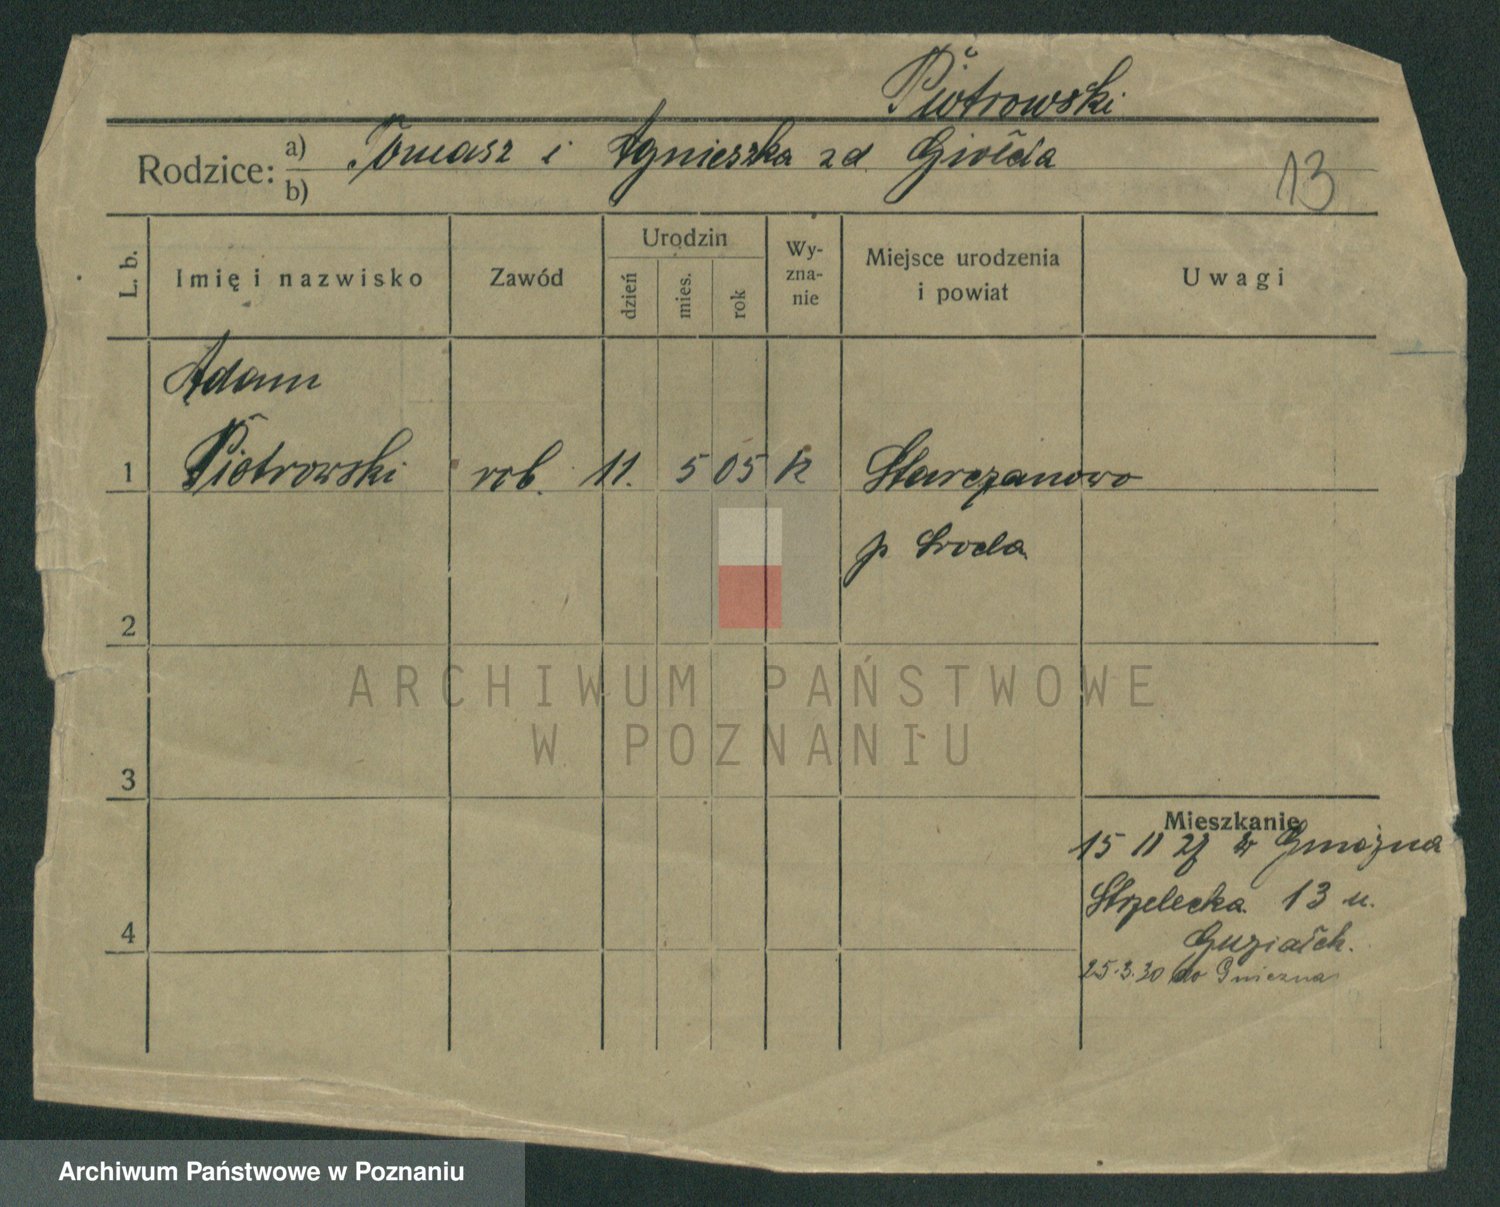 Piotrowski
Rodzice: a) Tomasz i Agnieszka zd
b)
13
L. b.
Imię i nazwisko
Zawód
Urodzin
dzień
mies.
rok
Wy-
zna-
nie
Miejsce urodzenia
i powiat
Uwagi
Adam
1 Piotrowski rob. 11. 5 05 k Starczanowo
p Środa
2
3
4
Mieszkanie
15 11 27 z Gniezna
Strzelecka 13 u.
25.3.30 do Gniezna
ARCHIWUM PAŃSTWOWE
W POZNANIU
Archiwum Państwowe w Poznaniu